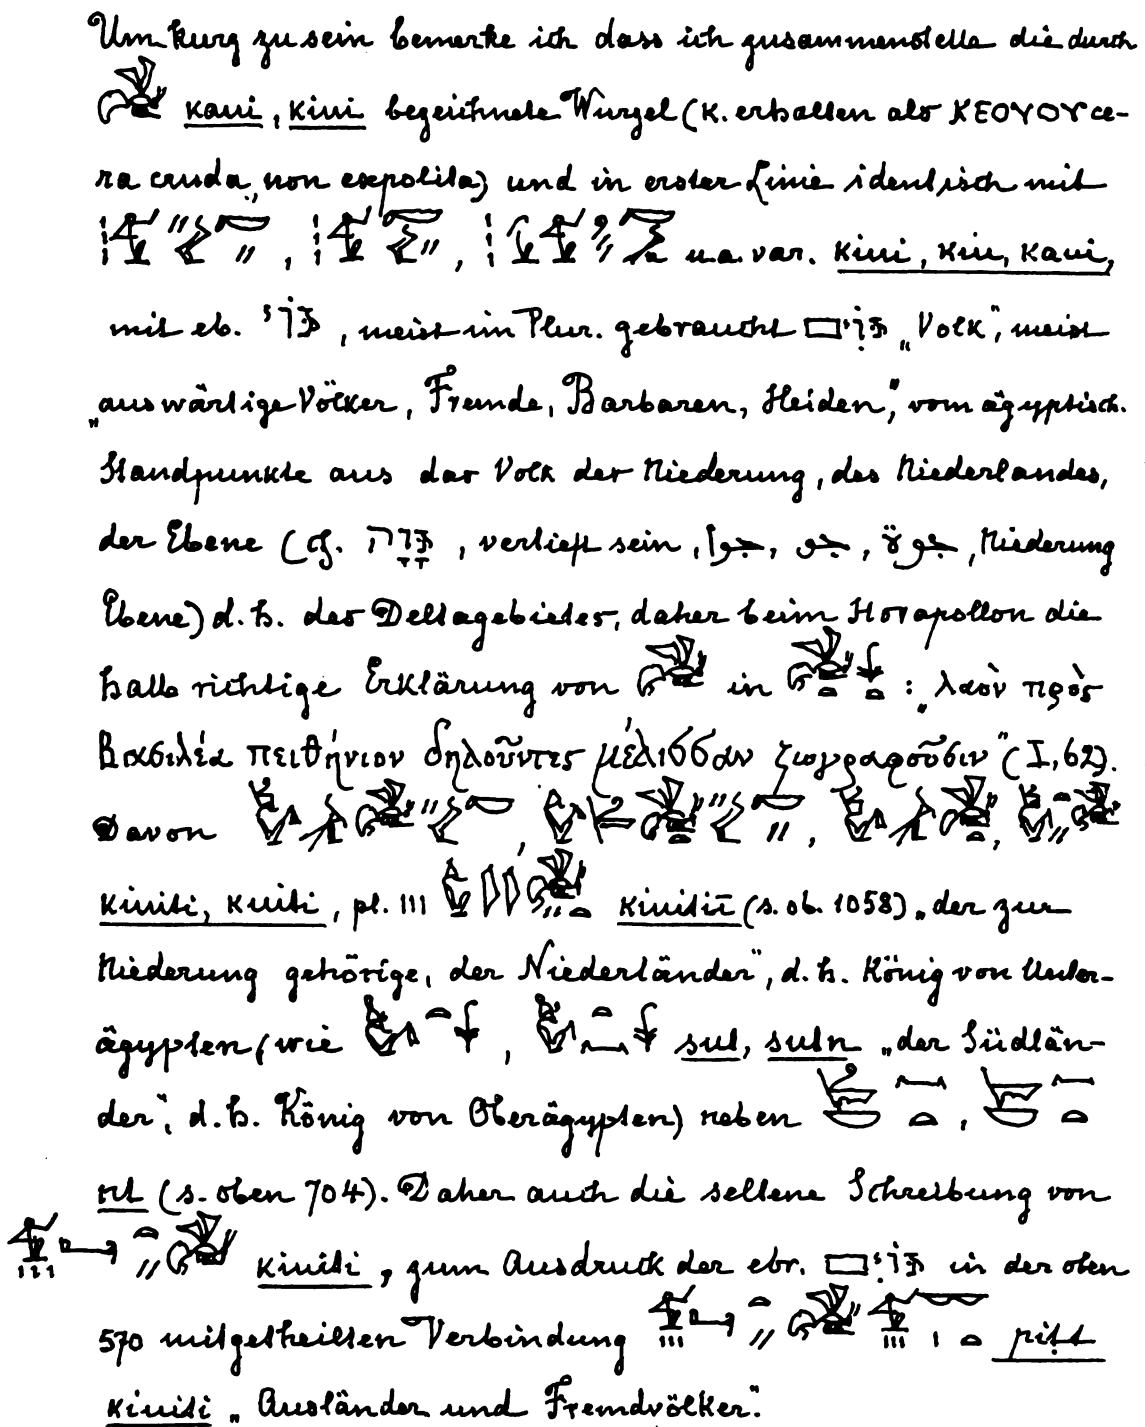 Um kurz zu sein bemerke ich dass ich zusammenstelle die durch
kaui, kiui bezeichnete Wurzel (K. erhalten als ΚΕΟΥΟΥ ce-
ra cruda, non expolita) und in erster Linie identisch mit
, , u.a. var. kiui, kiu, kaui,
mit eb. גּוֹי, meist im Plur. gebraucht גּוֹיִם „Volk", meist
„auswärtige Völker, Fremde, Barbaren, Heiden", vom ägyptisch.
Standpunkte aus das Volk der Niederung, des Niederlandes,
der Ebene (cf. , vertieft sein, جوا, جو, جوة, Niederung
Ebene) d. h. des Deltagebietes, daher beim Horapollon die
halb richtige Erklärung von in : „λαὸν πρὸς
βασιλέα πειθήνιον δηλοῦντες μέλισσαν ζωγραφοῦσιν" (I,62).
Davon , , ,
kiuiti, kuiti, pl. III kiuitiī (s. ob. 1058) „der zur
Niederung gehörige, der Niederländer", d. h. König von Unter-
ägypten (wie , sut, sutn „der Südlän-
der", d. h. König von Oberägypten) neben ,
nt (s. oben 704). Daher auch die seltene Schreibung von
kiuiti, zum Ausdruck der ebr. גּוֹיִם in der oben
570 mitgetheilten Verbindung pitt
kiuiti „Ausländer und Fremdvölker".